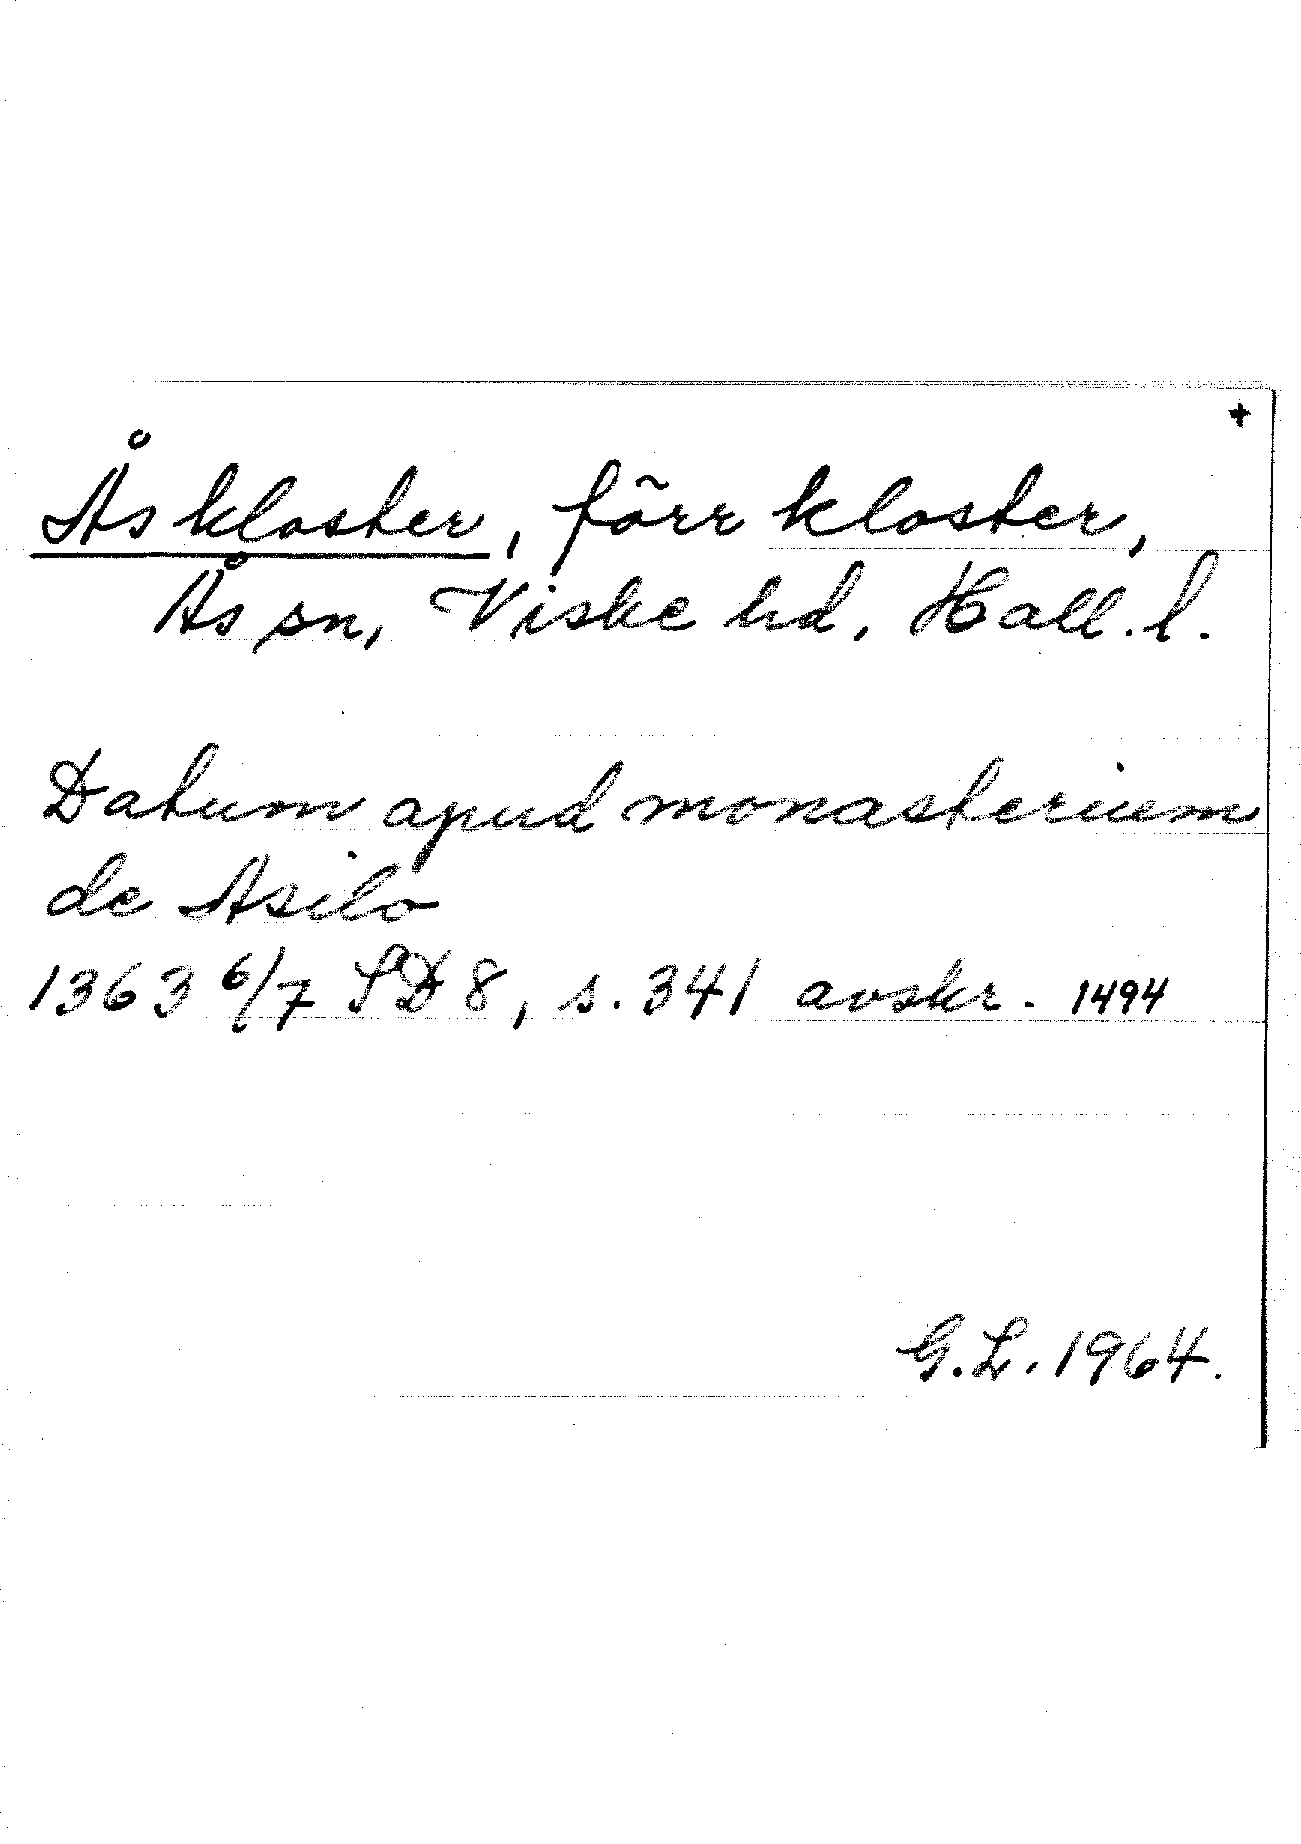 +
Ås kloster, förr kloster,
Ås sn, Viske hd, Hall. l.
Datum apud monasterium
de Asilo
1363 6/7 SD 8, s. 341 avskr. 1494
G.L. 1964.